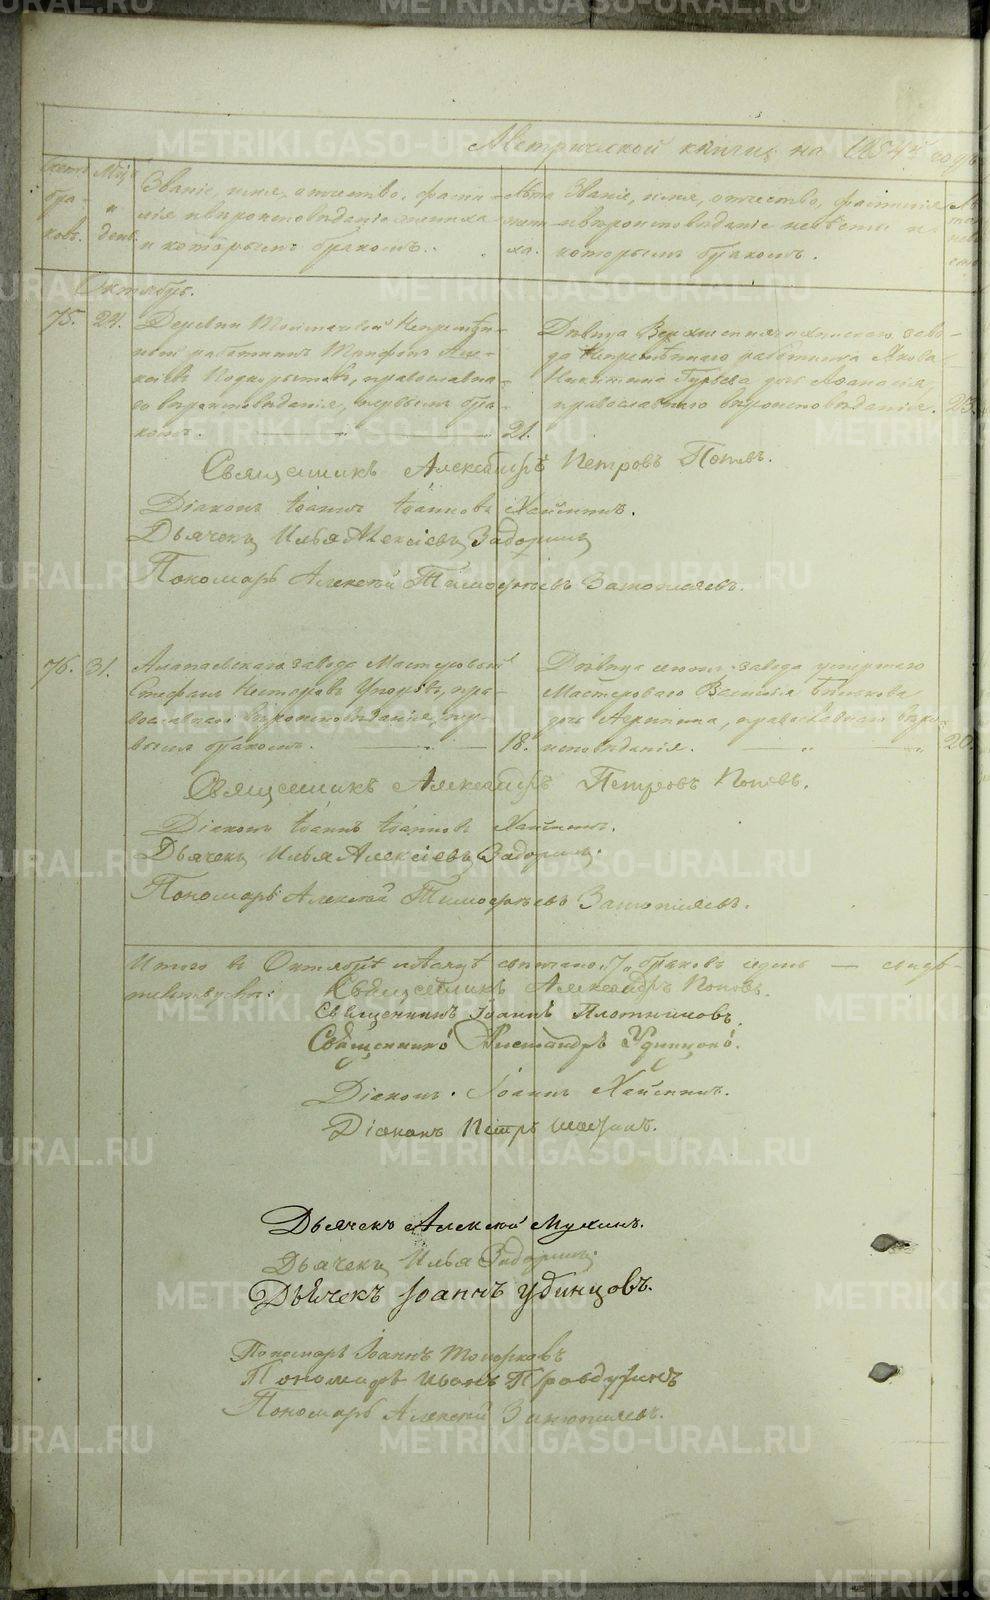 Метрической книги на 1854й годъ
Счетъ браковъ.
Мцъ и день.
Званіе, имя, отчество, фами-
лія и вѣроисповѣданіе жениха
и которымъ бракомъ.
Лѣта жениха.
Званіе, имя, отчество, фамилія
и вѣроисповѣданіе невѣсты и
которымъ бракомъ.
Октябрь.
75. 24. Деревни Непремѣн-
ный работникъ Трифонъ Але-
ксѣевъ Подкорытовъ, православна-
го вѣроисповѣданія, первымъ бра-
комъ. 21.
Дѣвица Верхнесинячихинскаго заво-
да Непремѣннаго работника Якова
Никитина Гурьева дочь Афанасія,
православнаго вѣроисповѣданія. 23.
Священникъ Александръ Петровъ Поповъ.
Діаконъ Іоаннъ Іоанновъ Хайминъ.
Дьячекъ Илья Алексіевъ Задоринъ
Пономарь Алексѣй Тимофѣевъ Затопляевъ.
76. 31. Алапаевскаго завода Мастеровый
Стефанъ Несторовъ пра-
вославнаго вѣроисповѣданія, пер-
вымъ бракомъ. 18.
Дѣвица тогожъ завода умершаго
Мастероваго Василія
дочь Акрипина, православнаго вѣро-
исповѣданія. 20.
Священникъ Александръ Петровъ Поповъ.
Діаконъ Іоаннъ Іоанновъ Хайминъ.
Дьячекъ Илья Алексіевъ Задоринъ.
Пономарь Алексѣй Тимофѣевъ Затопляевъ.
Итого въ Октябрѣ мѣсяцѣ 7, браковъ седмь — свидѣ-
тельствуютъ:
Священникъ Александръ Поповъ.
Священникъ Іоаннъ Плотниковъ
Священникъ Александръ Удинцовъ.
Діаконъ Іоаннъ Хайминъ.
Діаконъ Петръ
Дьячекъ Алексѣй Мухинъ.
Дьячекъ Илья Задоринъ.
Дьячекъ Іоаннъ Удинцовъ.
Пономарь Іоаннъ Топорковъ
Пономарь Иванъ Правдухинъ
Пономарь Алексѣй Затопляевъ.
METRIKI.GASO-URAL.RU